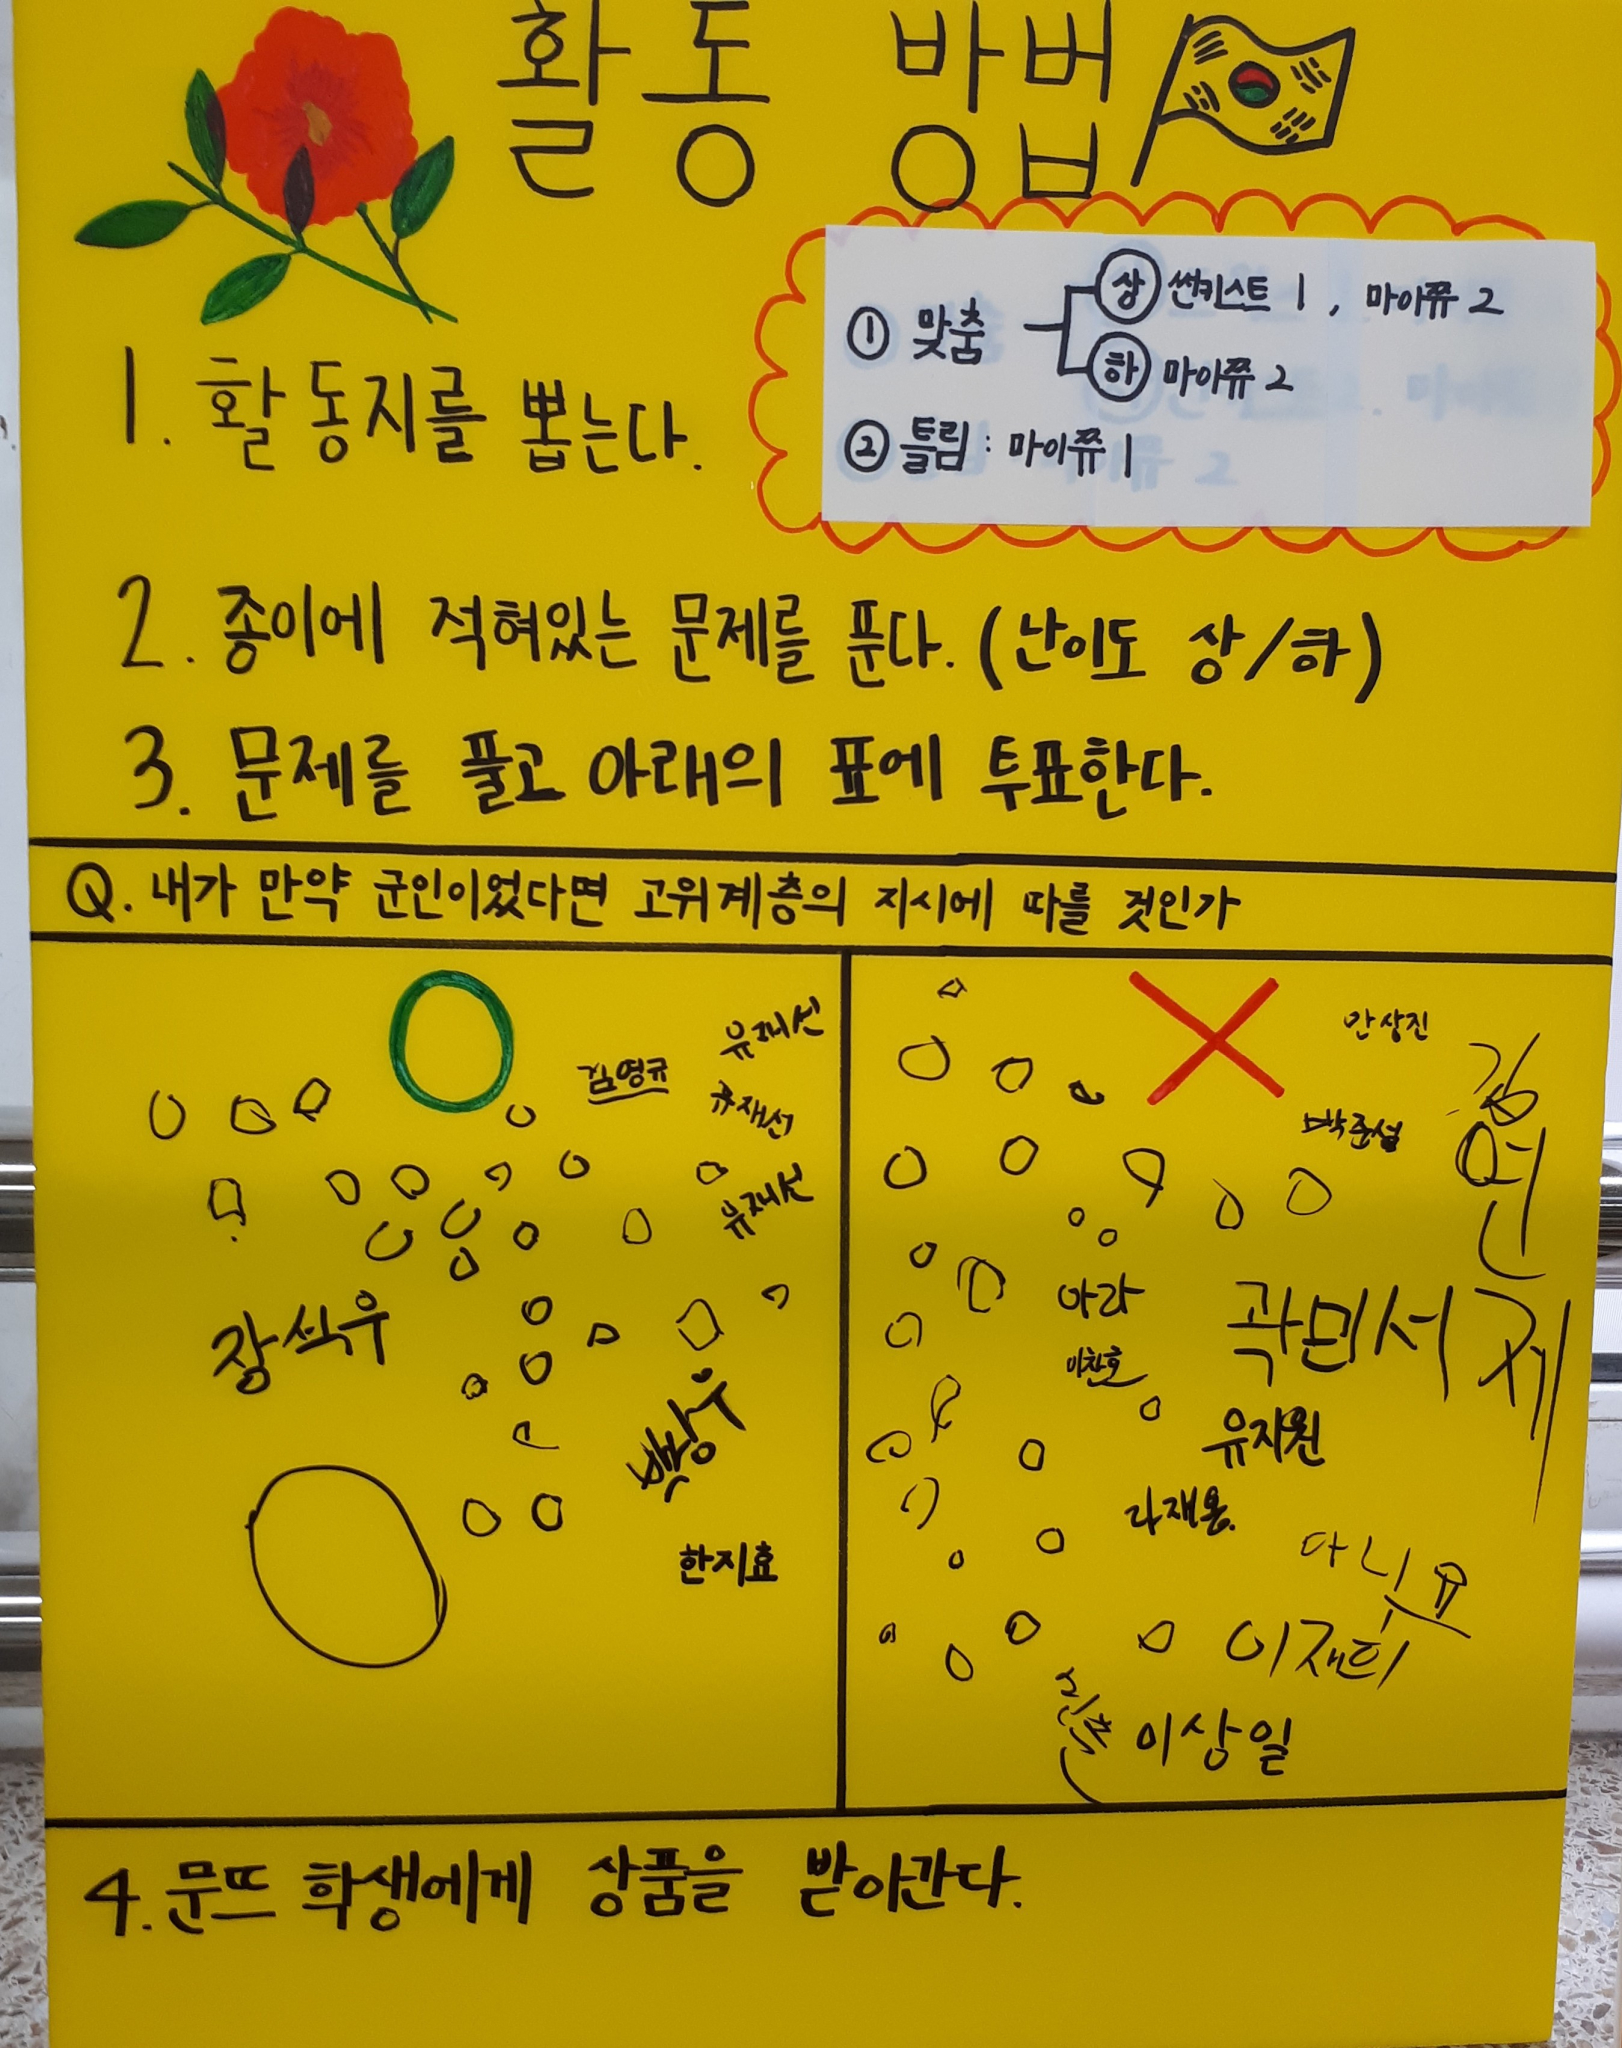 활동 방법
① 맞춤
상 썬키스트 1, 마이쮸 2
하 마이쮸 2
② 틀림 : 마이쮸 1
1. 활동지를 뽑는다.
2. 종이에 적혀있는 문제를 푼다. (난이도 상/하)
3. 문제를 풀고 아래의 표에 투표한다.
Q. 내가 만약 군인이었다면 고위계층의 지시에 따를 것인가
O
유재선
김영규
유재선
유재선
장석우
한지효
X
안상진
박준섭
아라
곽민서
이찬호
유지원
라재용.
이재희
이상일
4. 문뜨 학생에게 상품을 받아간다.